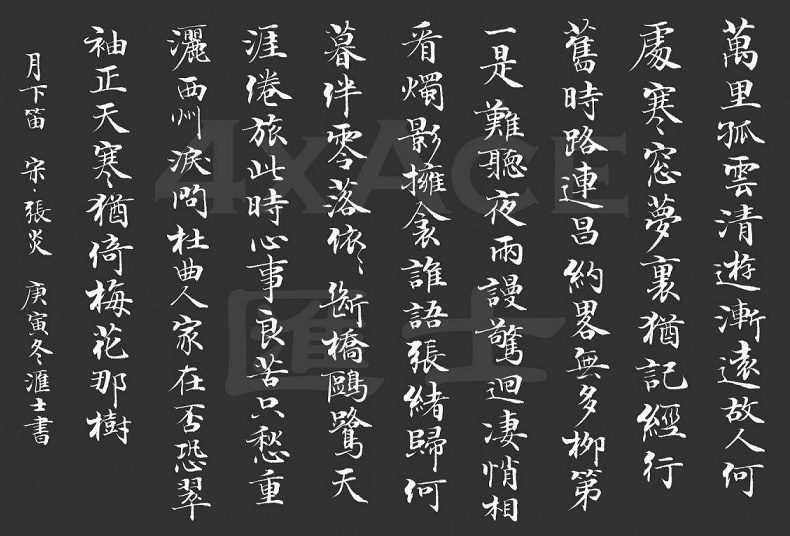 萬里孤雲清遊漸遠故人何
處寒窓夢裏猶記經行
舊時路連昌約畧無多柳第
一是難聽夜雨謾驚迴淒悄相
看燭影擁衾誰語張緒歸何
暮伴零落依〻斷橋鷗鷺天
涯倦旅此時心事良苦只愁重
灑西州淚問杜曲人家在否恐翠
袖正天寒猶倚梅花那樹
月下笛 宋 張炎 庚寅冬滙士書
4xAce
匯士